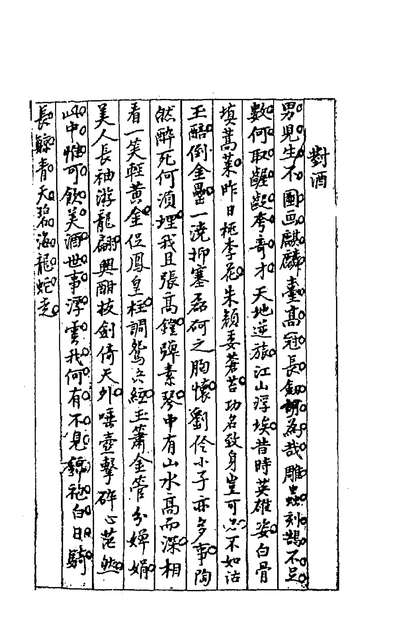 對酒
男兒生不圖画麒麟臺高冠長劍何為哉雕蟲刻鵠不足
數何取齷齪夸奇才天地逆旅江山浮埃昔時英雄姿白骨
填蒿萊昨日桃李花朱顏委蒼苔功名致身豈可忘不如沽
玉醅倒金罍一澆抑塞磊砢之胸懷劉伶小子亦多事陶
然醉死何須埋我且張高鐙彈素琴中有山水高而深相
看一笑輕黃金促鳳皇柱調鴛央絃玉簫金管分嬋娟
美人長袖游龍翩興酣拔劍倚天外唾壺擊碎心茫然
此中惟可飲美酒世事浮雲我何有不見錦袍白日騎
長鯨青天碧海龍蛇走